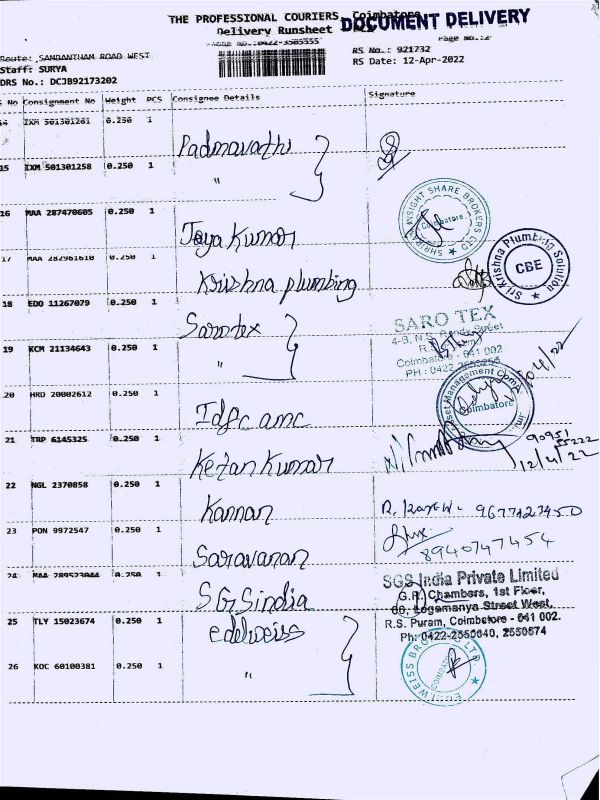 THE PROFESSIONAL COURIERS, Coimbatore
DOCUMENT DELIVERY
Delivery Runsheet
Page No.:2
Route: SAMBANTHAM ROAD WEST
RS No.: 921732
Staff: SURYA
RS Date: 12-Apr-2022
DRS No.: DCJB92173202
S No Consignment No Weight PCS Consignee Details Signature
14 IXM 501301261 0.250 1
Padmavathi
15 IXM 501301258 0.250 1
"
16 MAA 287470605 0.250 1
Jaya Kumar
SHRIRAM INSIGHT SHARE BROKERS LTD
Coimbatore
17 MAA 282961610 0.250 1
Krishna plumbing
Sri Krishna Plumbing Solution
CBE
18 EDO 11267079 0.250 1
Sarotex
SARO TEX
19 KCM 21134643 0.250 1
"
Coimbatore - 641 002.
PH : 0422-
20 HRD 20002612 0.250 1
Idfc amc
Asset Management
Coimbatore
21 TRP 6145325 0.250 1
Ketan Kumar
12/4/22
22 NGL 2370858 0.250 1
Kannan
9677427450
23 PON 9972547 0.250 1
Saravanan
8940747454
24 MAA 289523044 0.250 1
SGS india
SGS India Private Limited
G.R. Chambers, 1st Floor,
Logamanya Street West,
R.S. Puram, Coimbatore - 641 002.
Ph: 0422-2550640, 2550674
25 TLY 15023674 0.250 1
edelweiss
26 KOC 60100381 0.250 1
"